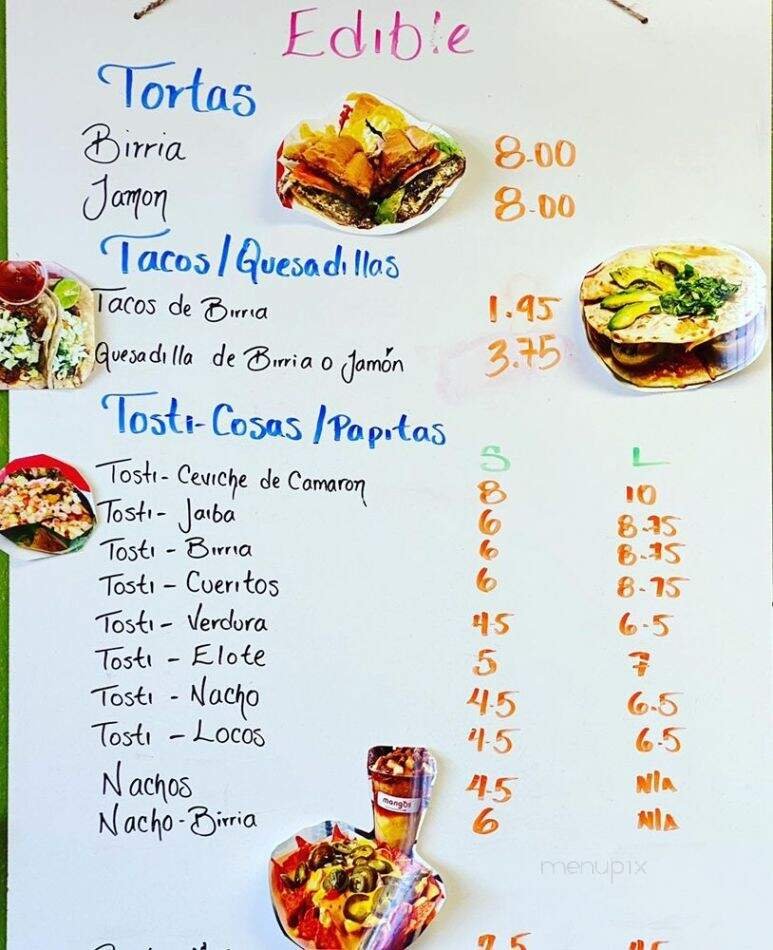 Edible
Tortas
Birria 8.00
Jamon 8.00
Tacos/Quesadillas
Tacos de Birria 1.95
Quesadilla de Birria o Jamón 3.75
Tosti-Cosas/Papitas
S L
Tosti-Ceviche de Camaron 8 10
Tosti-Jaiba 6 8.75
Tosti-Birria 6 8.75
Tosti-Cueritos 6 8.75
Tosti-Verdura 4.5 6.5
Tosti-Elote 5 7
Tosti-Nacho 4.5 6.5
Tosti-Locos 4.5 6.5
Nachos 4.5 N/A
Nacho-Birria 6 N/A
mangos
menupix